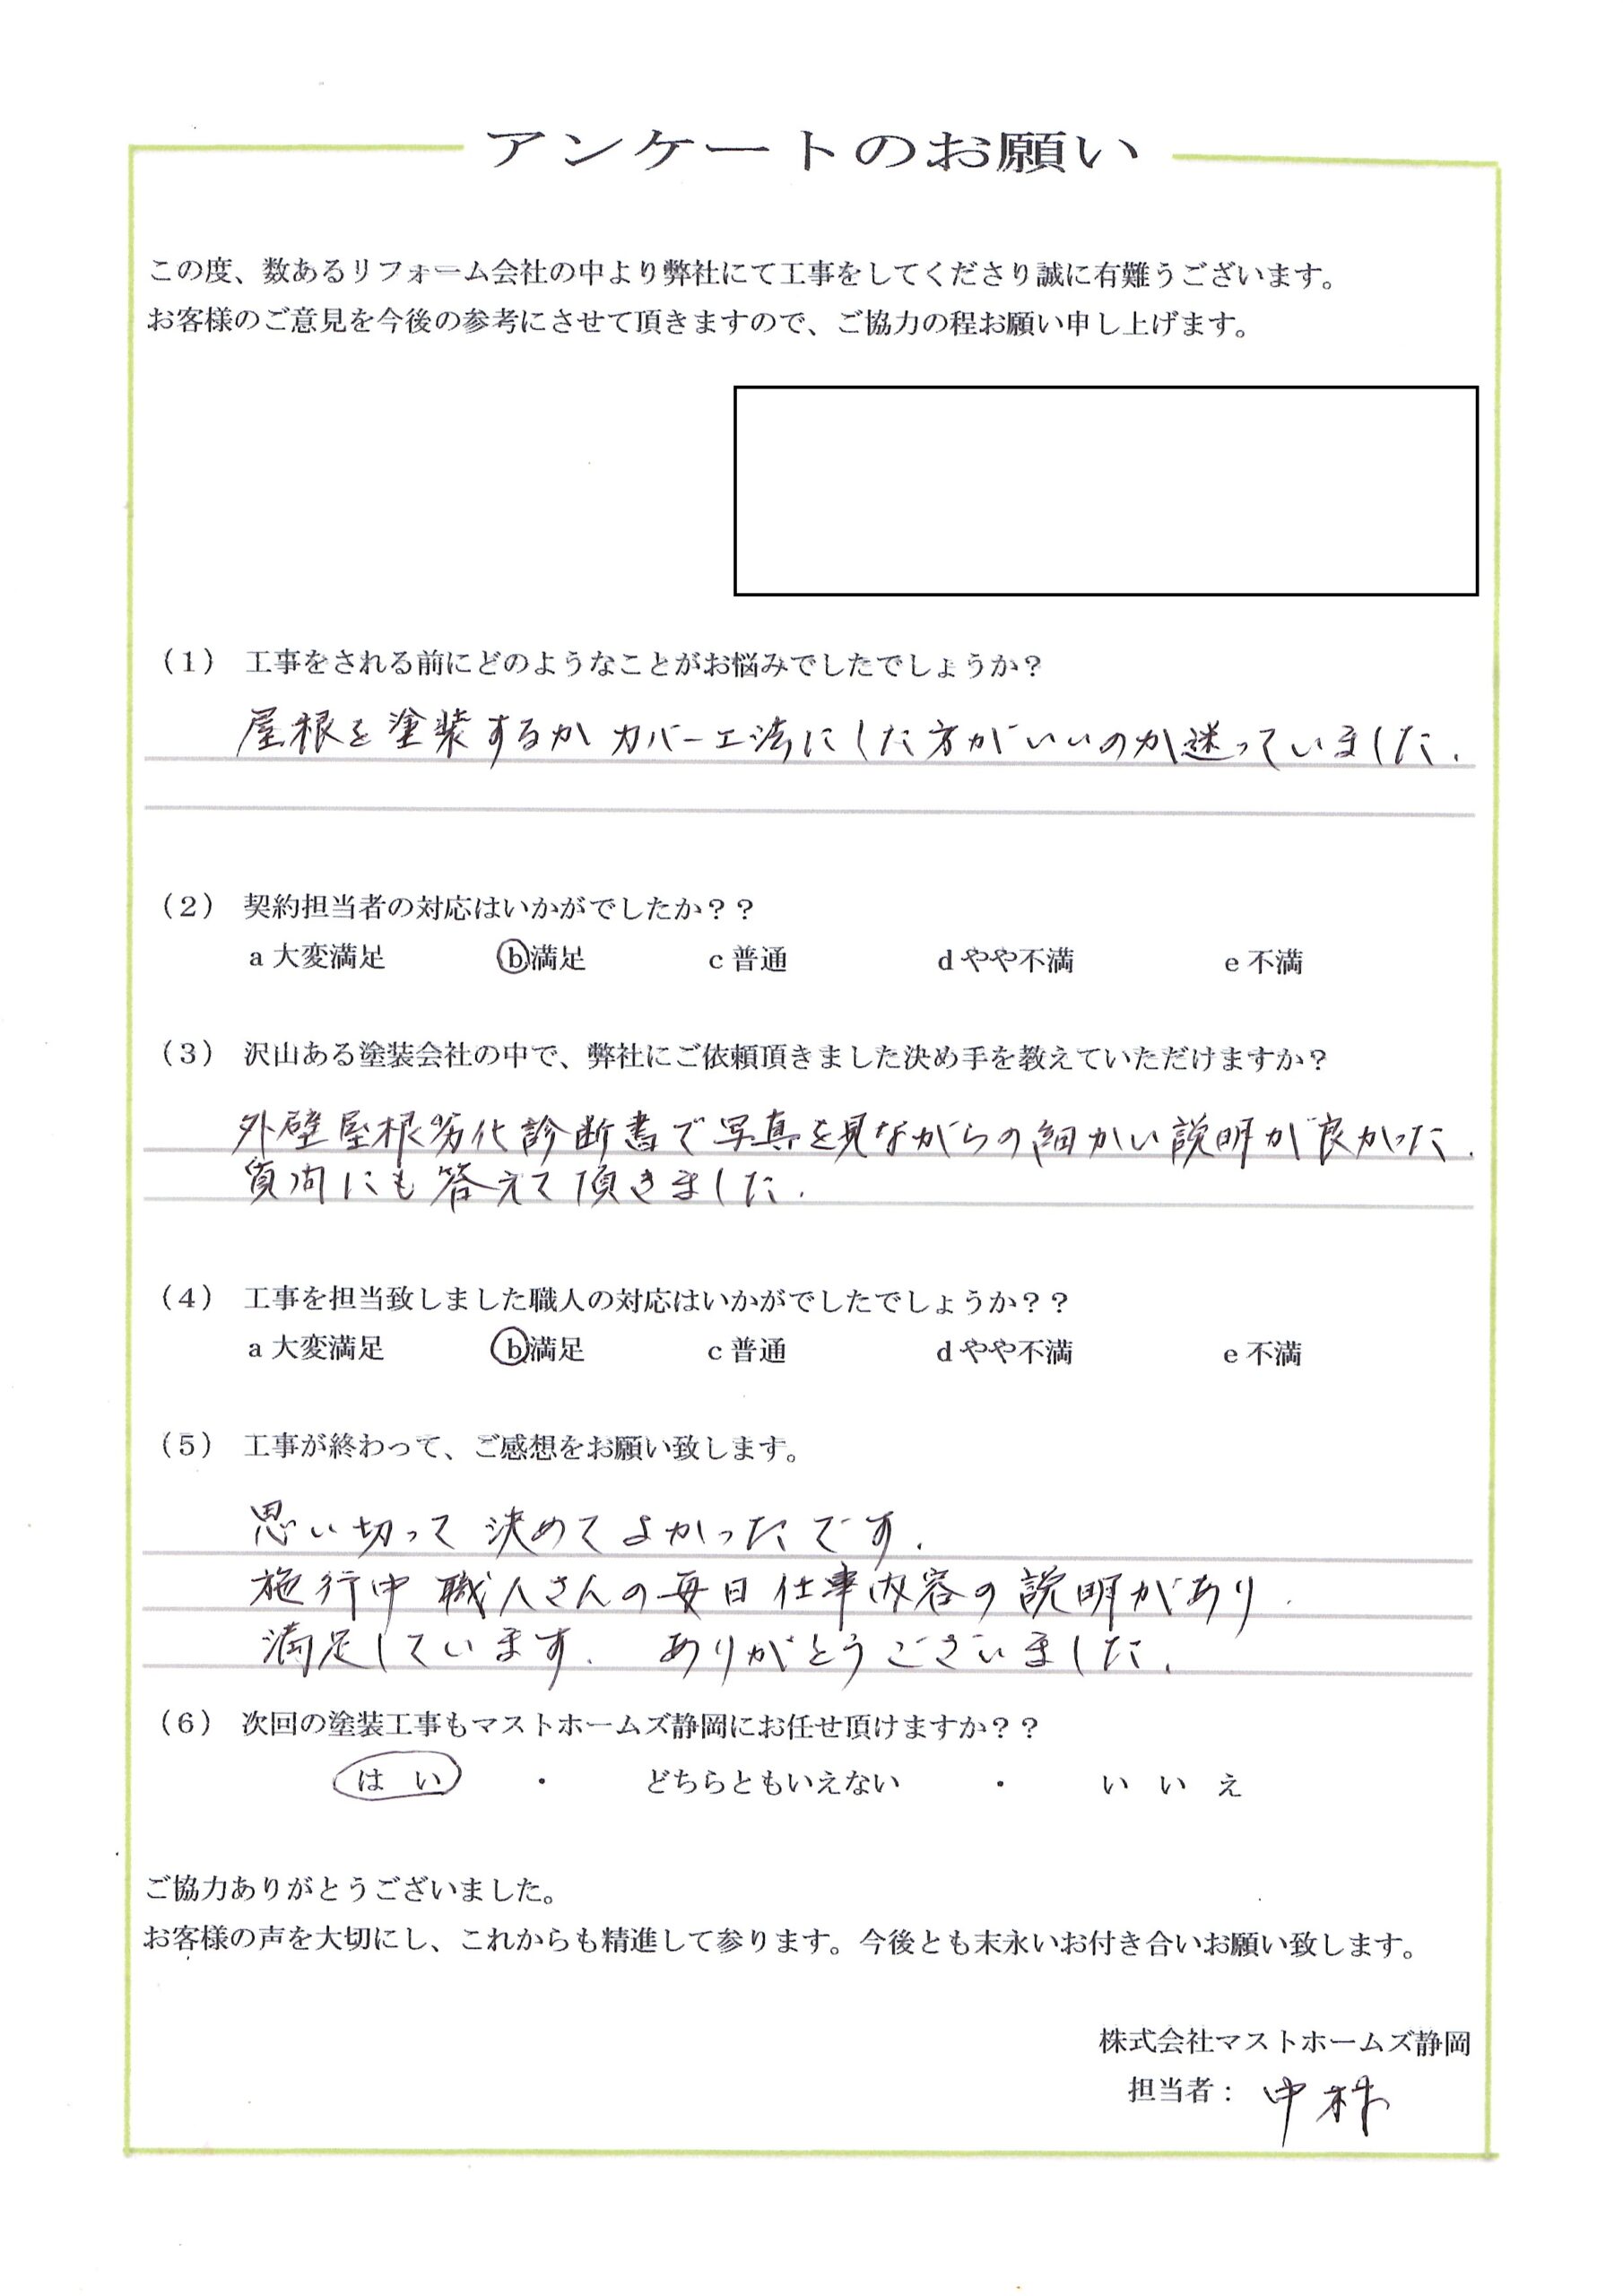 アンケートのお願い
この度、数あるリフォーム会社の中より弊社にて工事をしてくださり誠に有難うございます。
お客様のご意見を今後の参考にさせて頂きますので、ご協力の程お願い申し上げます。
(1) 工事をされる前にどのようなことがお悩みでしたでしょうか?
屋根を塗装するか カバー工法にした方がいいのか迷っていました.
(2) 契約担当者の対応はいかがでしたか??
a 大変満足 b 満足 c 普通 d やや不満 e 不満
(3) 沢山ある塗装会社の中で、弊社にご依頼頂きました決め手を教えていただけますか?
外壁屋根劣化診断書で写真を見ながらの細かい説明が良かった.
質問にも答えて頂きました.
(4) 工事を担当致しました職人の対応はいかがでしたでしょうか??
a 大変満足 b 満足 c 普通 d やや不満 e 不満
(5) 工事が終わって、ご感想をお願い致します。
思い切って決めてよかったです.
施行中 職人さんの毎日仕事内容の説明があり.
満足しています. ありがとうございました.
(6) 次回の塗装工事もマストホームズ静岡にお任せ頂けますか??
はい ・ どちらともいえない ・ いいえ
ご協力ありがとうございました。
お客様の声を大切にし、これからも精進して参ります。今後とも末永いお付き合いお願い致します。
株式会社マストホームズ静岡
担当者: 中村